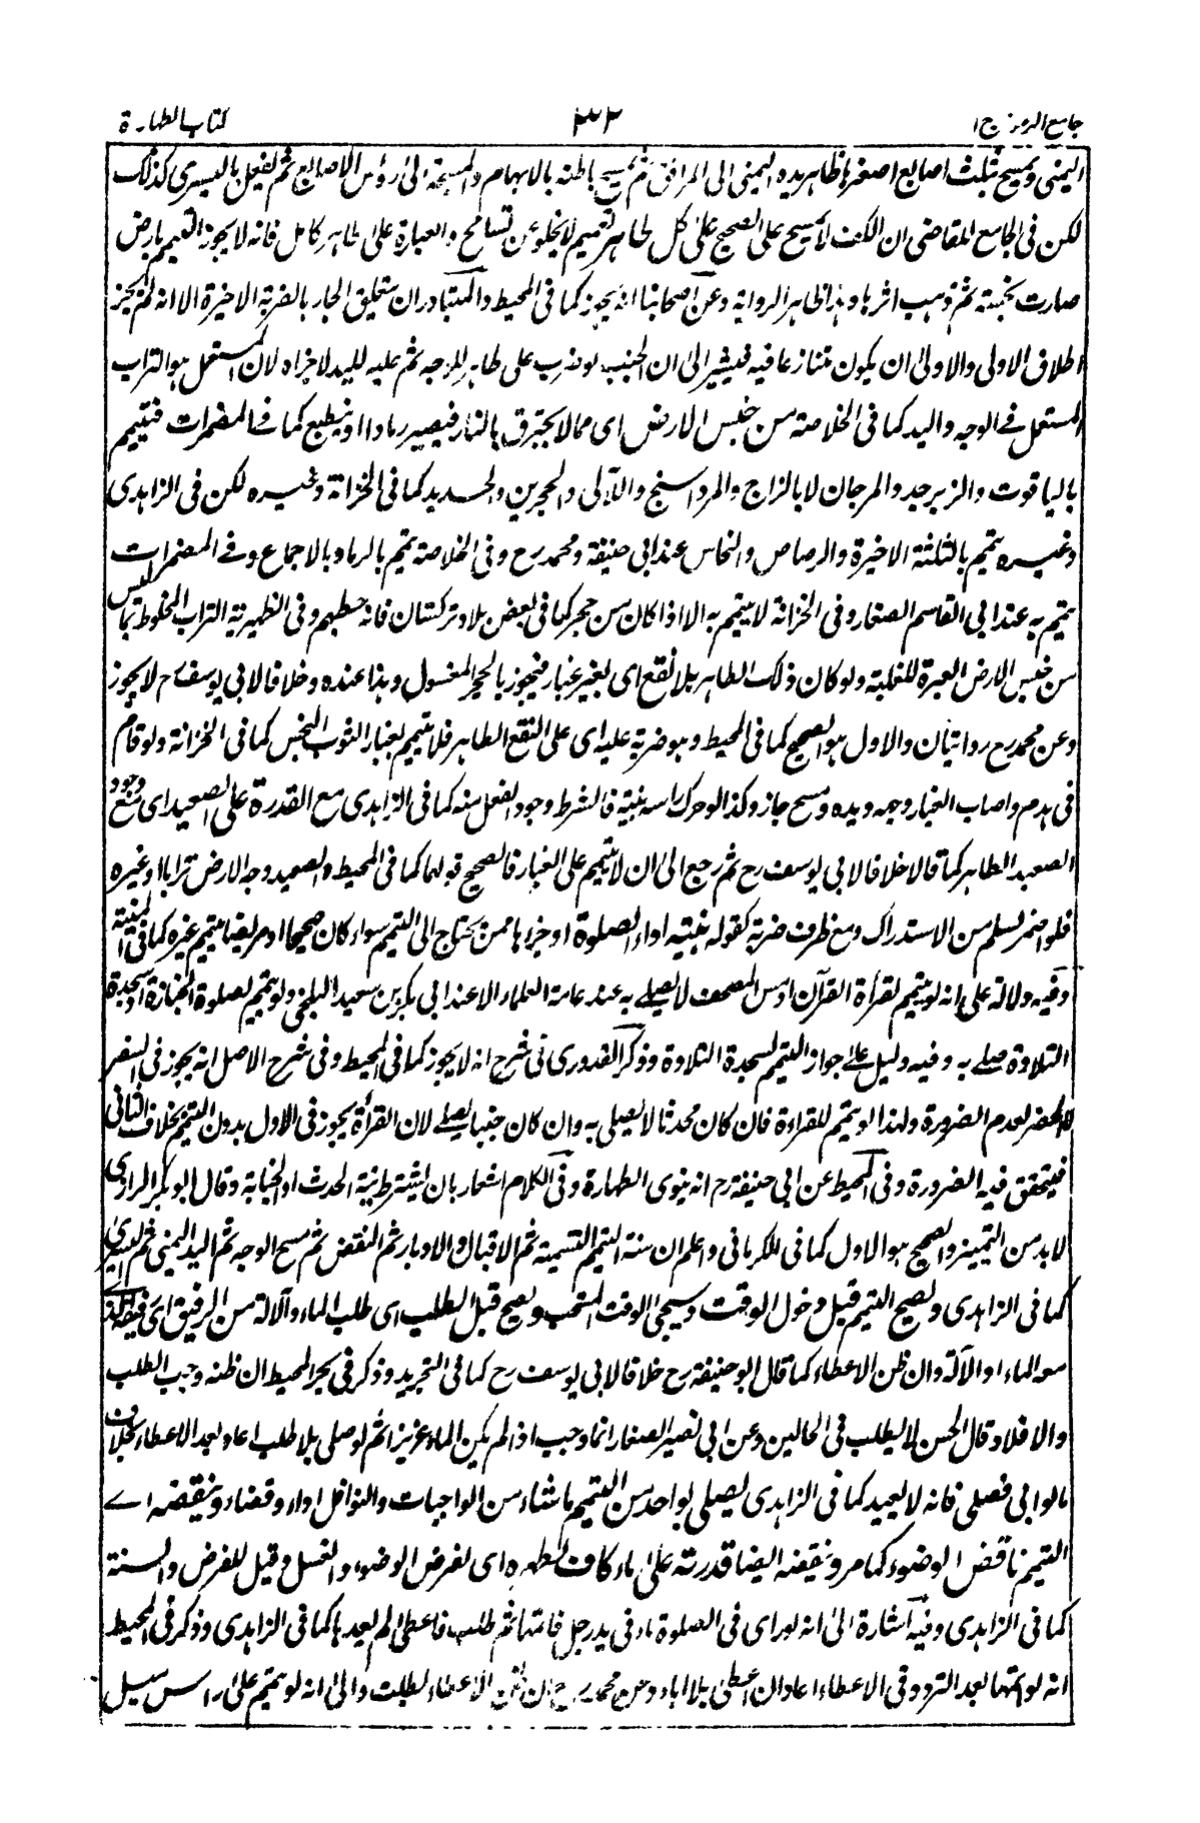 جامع الرموز ج ١ ٣٢ كتاب الطهارة
اليمنى ويمسح بثلث اصابع اصغرها ظاهر يده اليمنى الى المرافق ثم يمسح باطنه بالابهام والمسبحة الى رؤس الاصابع ثم يفعل باليسرى كذلك
لكن فى الجامع لقاضى ان الكف لا يمسح على الصحيح على كل طاهر لتعميم لا يخلو عن تسامح والعبارة على طاهر كامل فانه لا يجوز التيمم بارض
صارت نجسة ثم ذهب اثرها وهذا ظاهر الرواية وعن اصحابنا انه يجوز كما فى المحيط والمتبادر ان متعلق الجار بالضربة الاخيرة الا انه لم يجز
اطلاق الاولى والاولى ان يكون متنازعا فيه فيشير الى ان الجنب لو ضرب على طاهر للوجه ثم عليه لليد لاجزاه لان المستعمل هو التراب
المستعمل فى الوجه واليد كما فى الخلاصة من جنس الارض اى مما لا يحترق بالنار فيصير رمادا او ينطبع كما فى المضمرات فتيمم
بالياقوت والزبرجد والمرجان لا بالزاج والمرداسنج واللآلى والحجرين والحديد كما فى الخزانة وغيره لكن فى الزاهدى
وغيره يتيمم بالثلثة الاخيرة والرصاص والنحاس عند ابى حنيفة ومحمد رح وفى الخلاصة يتيمم بالرماد بالاجماع وفى المضمرات ليس
يتيمم به عند ابى القاسم الصفار وفى الخزانة لا يتيمم به الا اذا كان من حجر كما فى بعض بلاد تركستان فانه حطبهم وفى الظهيرية التراب المخلوط بما
من جنس الارض العبرة للغلبة ولو كان ذلك الطاهر بلا نقع اى بغير غبار فيجوز بالحجر المغسول وهذا عنده وخلافا لابى يوسف رح لا يجوز
وعن محمد رح روايتان والاول هو الصحيح كما فى المحيط وهو ضربة عليه اى على النقع الطاهر فلا يتيمم بغبار الثوب النجس كما فى الخزانة ولو قام
فى هدم واصاب الغبار وجهه ويده ومسح جاز وكذا لو حرك راسه بنيته فالشرط وجود الفعل منه كما فى الزاهدى مع القدرة على الصعيد اى مع وجود
الصعيد الطاهر كما قالا خلافا لابى يوسف رح ثم رجع الى ان لا يتيمم على الغبار فالصحيح قولهما كما فى المحيط والصعيد وجه الارض ترابا او غيره
فلو اضمر لسلم من الاستدراك ومع ظرف ضربة كقوله بنيته اداء الصلوة او جزءها ممن يحتاج الى التيمم سواء كان صحيحا او مريضا يتيمم غيره كما فى المنية
وفيه دلالة على انه لو يتيمم لقرأة القرآن او مس المصحف لا يصلى به عند عامة العلماء الا عند ابى بكر بن سعيد البلخى ولو يتيمم لصلوة الجنازة او سجدة
التلاوة صلى به وفيه دليل على جواز التيمم لسجدة التلاوة وذكر القدورى فى شرح انه لا يجوز كما فى المحيط وفى شرح الاصل انه يجوز فى السفر
لا الحضر لعدم الضرورة ولهذا لو يتيمم للقراءة فان كان محدثا لا يصلى به وان كان جنبا يصلى لان القرأة يجوز فى الاول بدون التيمم بخلاف الثانى
فيتحقق فيه الضرورة وفى المحيط عن ابى حنيفة رح انه ينوى الطهارة وفى الكلام اشعار بان يشترط نية الحدث او الجنابة وقال ابو بكر الرازى
لا بد من التمييز والصحيح هو الاول كما فى الكرمانى واعلم ان سنة التيمم التسمية ثم الاقبال والادبار ثم النفض ثم مسح الوجه ثم اليد اليمنى ثم اليسرى
كما فى الزاهدى ويصح التيمم قبل دخول الوقت وسيجئ الوقت المستحب ويصح قبل الطلب اى طلب الماء وآلالة من الرفيق اى
معه الماء او الآلة وان ظن الاعطاء كما قال ابو حنيفة رح خلافا لابى يوسف رح كما فى التجريد وذكر فى بحر المحيط ان ظنه وجب الطلب
والا فلا وقال الحسن لا يطلب فى الحالين وعن ابى نصير الصفار انما وجب اذا لم يكن الماء عزيزا ثم لو صلى بلا طلب اعاد بعد الاعطاء بخلاف
ما لو ابى فصلى فانه لا يعيد كما فى الزاهدى يصلى بواحد من التيمم ما شاء من الواجبات والنوافل اداء وقضاء وينقضه اى
التيمم ناقض الوضوء كما مر وينقضه ايضا قدرته على ماء كاف لطهره اى لفرض الوضوء والغسل وقيل للفرض والسنة
كما فى الزاهدى وفيه اشارة الى انه لو راى فى الصلوة ماء فى يد رجل فاتمها ثم طلب فاعطى لم يعدها كما فى الزاهدى وذكر فى المحيط
انه لو اتمها بعد التردد فى الاعطاء اعاد ان اعطى بلا اباء وعن محمد رح ان ظن الاعطاء بطلت والى انه لو يتيمم على راس سيل